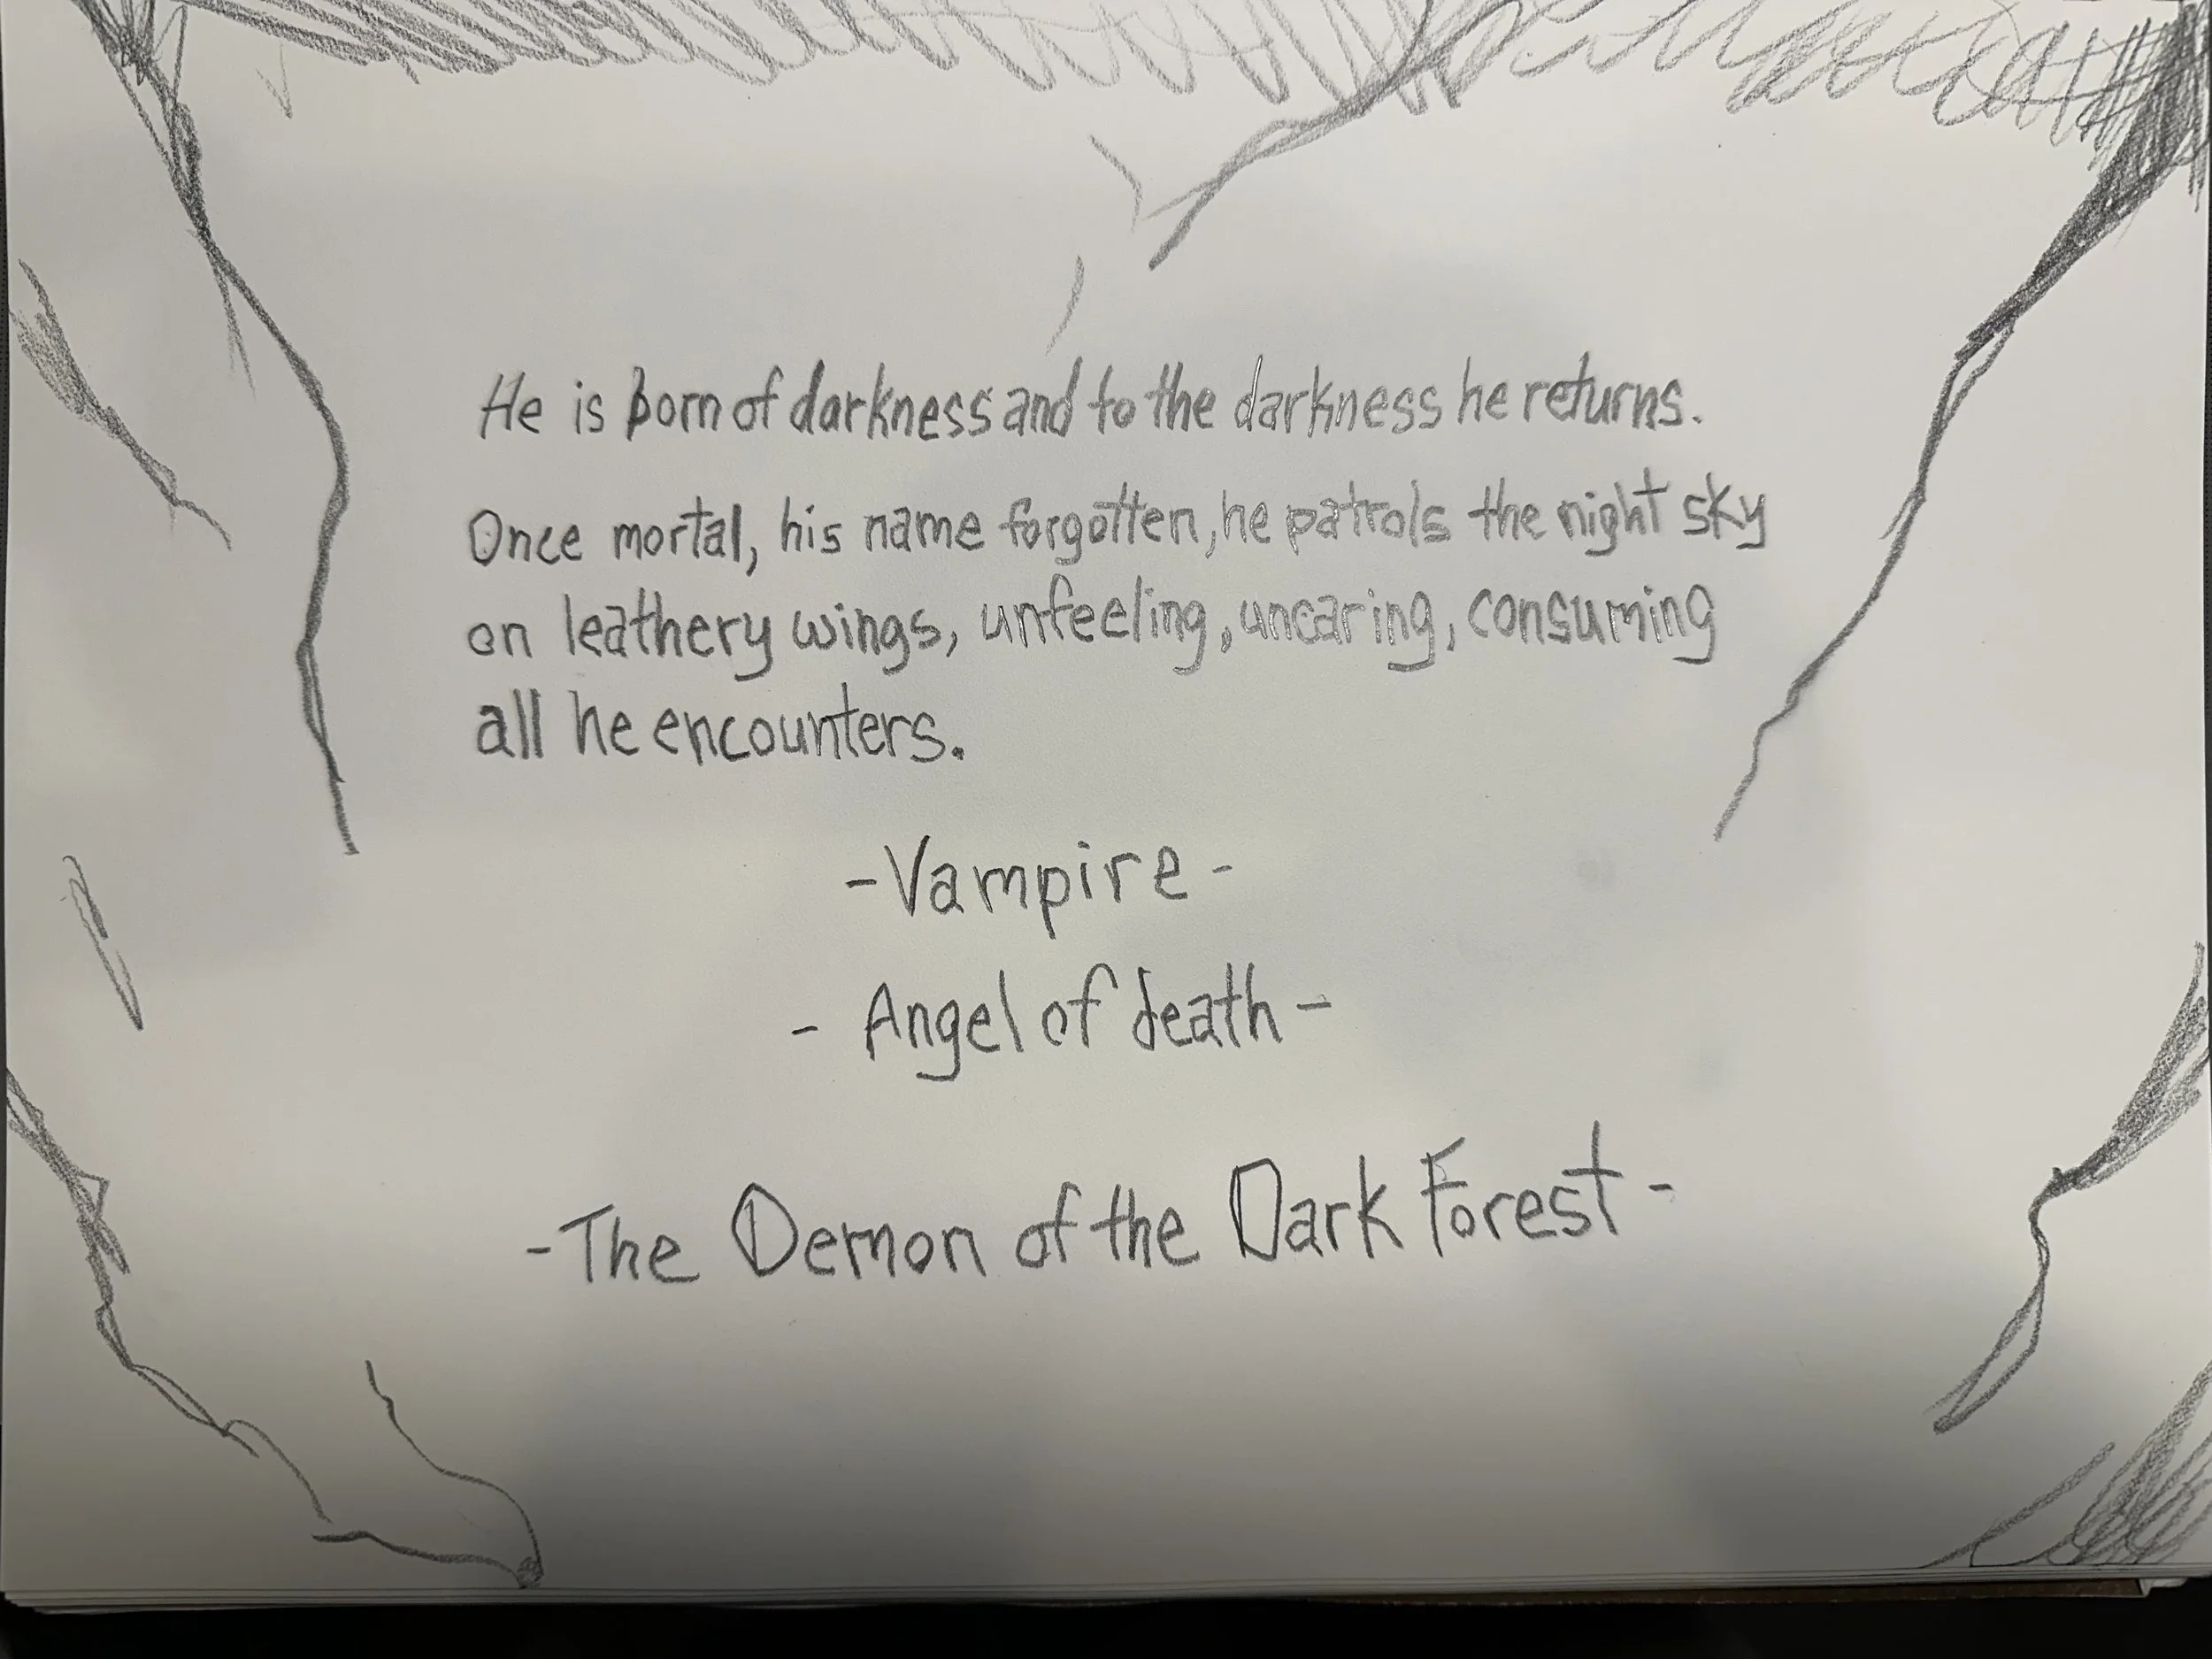 He is born of darkness and to the darkness he returns.
Once mortal, his name forgotten, he patrols the night sky
on leathery wings, unfeeling, uncaring, consuming
all he encounters.
-Vampire-
- Angel of death -
-The Demon of the Dark Forest-